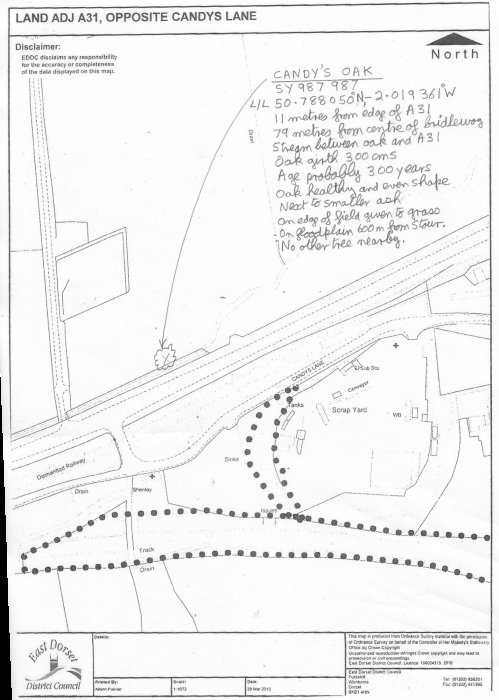 LAND ADJ A31, OPPOSITE CANDYS LANE
Disclaimer:
EDDC disclaims any responsibility
for the accuracy or completeness
of the data displayed on this map.
North
CANDY'S OAK
SY 987 987
L/L 50.788050°N, -2.019361°W
11 metres from edge of A31
79 metres from centre of bridleway
Stream between oak and A31
Oak girth 300 cms
Age probably 300 years
Oak healthy and even shape
Next to smaller ash
On edge of field given to grass
On floodplain 600m from Stour.
No other tree nearby.
Drain
CANDYS LANE
El Sub Sta
Conveyor
Tanks
Scrap Yard
WB
Sinks
Dismantled Railway
Drain
Shenley
Issues
Track
Drain
East Dorset
District Council
Details:
Printed By:
Scale:
1:1673
Date:
29 Mar 2010
This map is produced from Ordnance Survey material with the permission
of Ordnance Survey on behalf of the Controller of Her Majesty's Stationery
Office (c) Crown Copyright
Unauthorised reproduction infringes Crown copyright and may lead to
prosecution or civil proceedings.
East Dorset District Council
Furzehill
Wimborne
Dorset
BH21 4HN